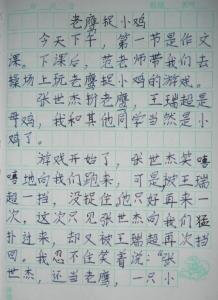 老鹰捉小鸡
今天下午，第一节是作文
课。下课后，范老师带我们去
操场上玩老鹰捉小鸡的游戏。
张世杰扮老鹰，王瑞超是
母鸡，我和其他同学当然是小
鸡了。
游戏开始了，张世杰笑嘻
嘻地向我们跑来，可是被王瑞
超一挡，没捉住他只好再来一
次，这次只见张世杰向我们猛
扑过来，却又被王瑞超再次挡
回。我忍不住笑着说："张
世杰，还当老鹰，一只小